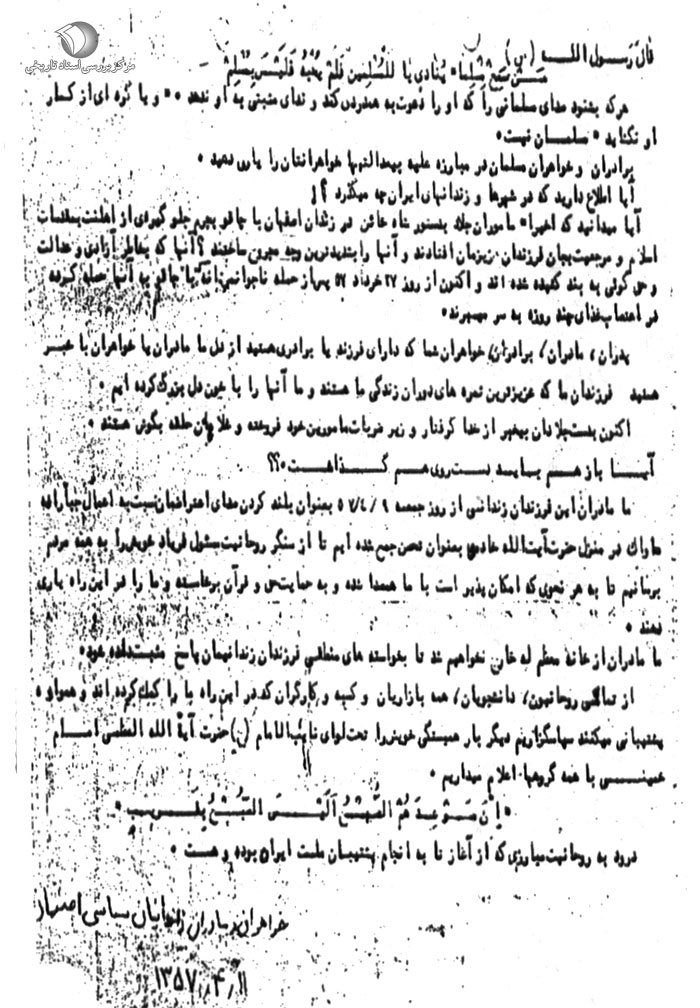 مرکز بررسی اسناد تاریخی
قال رسول الله (ص)
من سمع مسلما" ینادی یا للمسلمین فلم یجبه فلیس بمسلم
هر که بشنود صدای مسلمانی را که او را دعوت به همدردی کند و ندای مثبتی به او ندهد ۰۰ و یا گره ای از کار
او نگشاید ۰ مسلمان نیست۰
برادران و خواهران مسلمان در مبارزه علیه بیعدالتیها خواهرانتان را یاری دهید ۰
آیا اطلاع دارید که در شهرها و زندانهای ایران چه میگذرد ؟!
آیا میدانید که اخیرا" ماموران جلاد بدستور شاه خائن در زندان اصفهان با چاقو بجرم جلوگیری از اهانت بمقدسات
اسلام و مرجعیت بجان فرزندان عزیزمان افتادند و آنها را بشدیدترین وجه مجروح ساختند ؟ آنها که بخاطر آزادی و عدالت
و حق گوئی به بند کشیده شده اند و اکنون از روز ۲۷ خرداد ۵۷ پس از حمله ناجوانمردانه با چاقو به آنها حمله کرده
در اعتصاب غذای چند روزه به سر میبرند۰
پدران ، مادران/ برادران/ خواهران شما که دارای فرزند یا برادری هستید از دل ما مادران یا خواهران با خبر
هستید فرزندان ما که عزیزترین ثمره های دوران زندگی ما هستند و ما آنها را با خون دل بزرگ کرده ایم ۰
اکنون بدست جلادان بیخبر از خدا گرفتار و زیر ضربات مامورین خود فروخته و غلامان حلقه بگوش هستند ۰
آیا باز هم باید دست روی هم گذاشت ۰؟؟
ما مادران این فرزندان زندانی از روز جمعه ۹ / ۴ / ۵۷ بعنوان بلند کردن صدای اعتراضمان نسبت به اعمال جبارانه
ساواک در منزل حضرت آیت الله خادمی بعنوان تحصن جمع شده ایم تا از سنگر روحانیت مسئول فریاد خویش را به همه مردم
برسانیم تا به هر نحوی که امکان پذیر است با ما همصدا شده و به حمایت حق و قرآن برخاسته و ما را در این راه یاری
دهند ۰
ما مادران از خانه معظم له خارج نخواهیم شد تا بخواسته های منطقی فرزندان زندانیمان پاسخ مثبت داده شود۰
از تمامی روحانیون/ دانشجویان/ همه بازاریان و کسبه و کارگران که در این راه ما را کمک کرده اند و همواره
پشتیبانی میکنند سپاسگزاریم دیگر بار همبستگی خویش را تحت لوای نایب الامام (ن) حضرت آیة الله العظمی امام
خمینی با همه گروهها اعلام میداریم ۰
" ان موعدهم الصبح الیس الصبح بقریب "
درود به روحانیت مبارزی که از آغاز تا به انجام پشتیبان ملت ایران بوده و هست ۰
خواهران و مادران زندانیان سیاسی اصفهان
۱۱ / ۴ / ۱۳۵۷